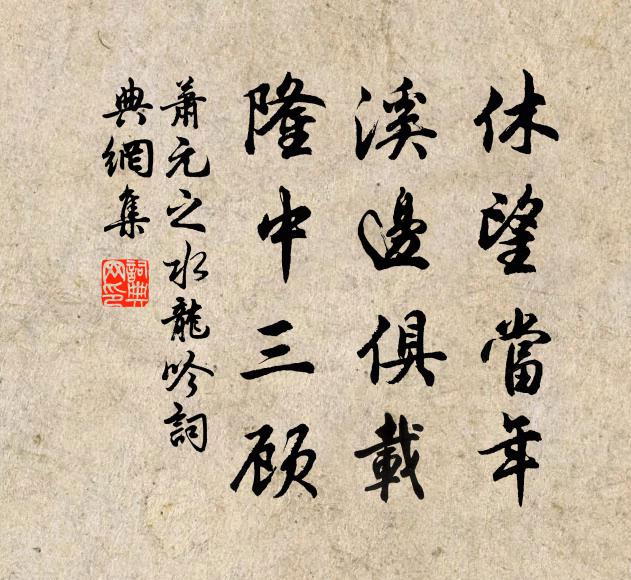 休望當年
溪邊俱載
隆中三顾
蕭元之水龍吟詞
典網集
詞典
网印